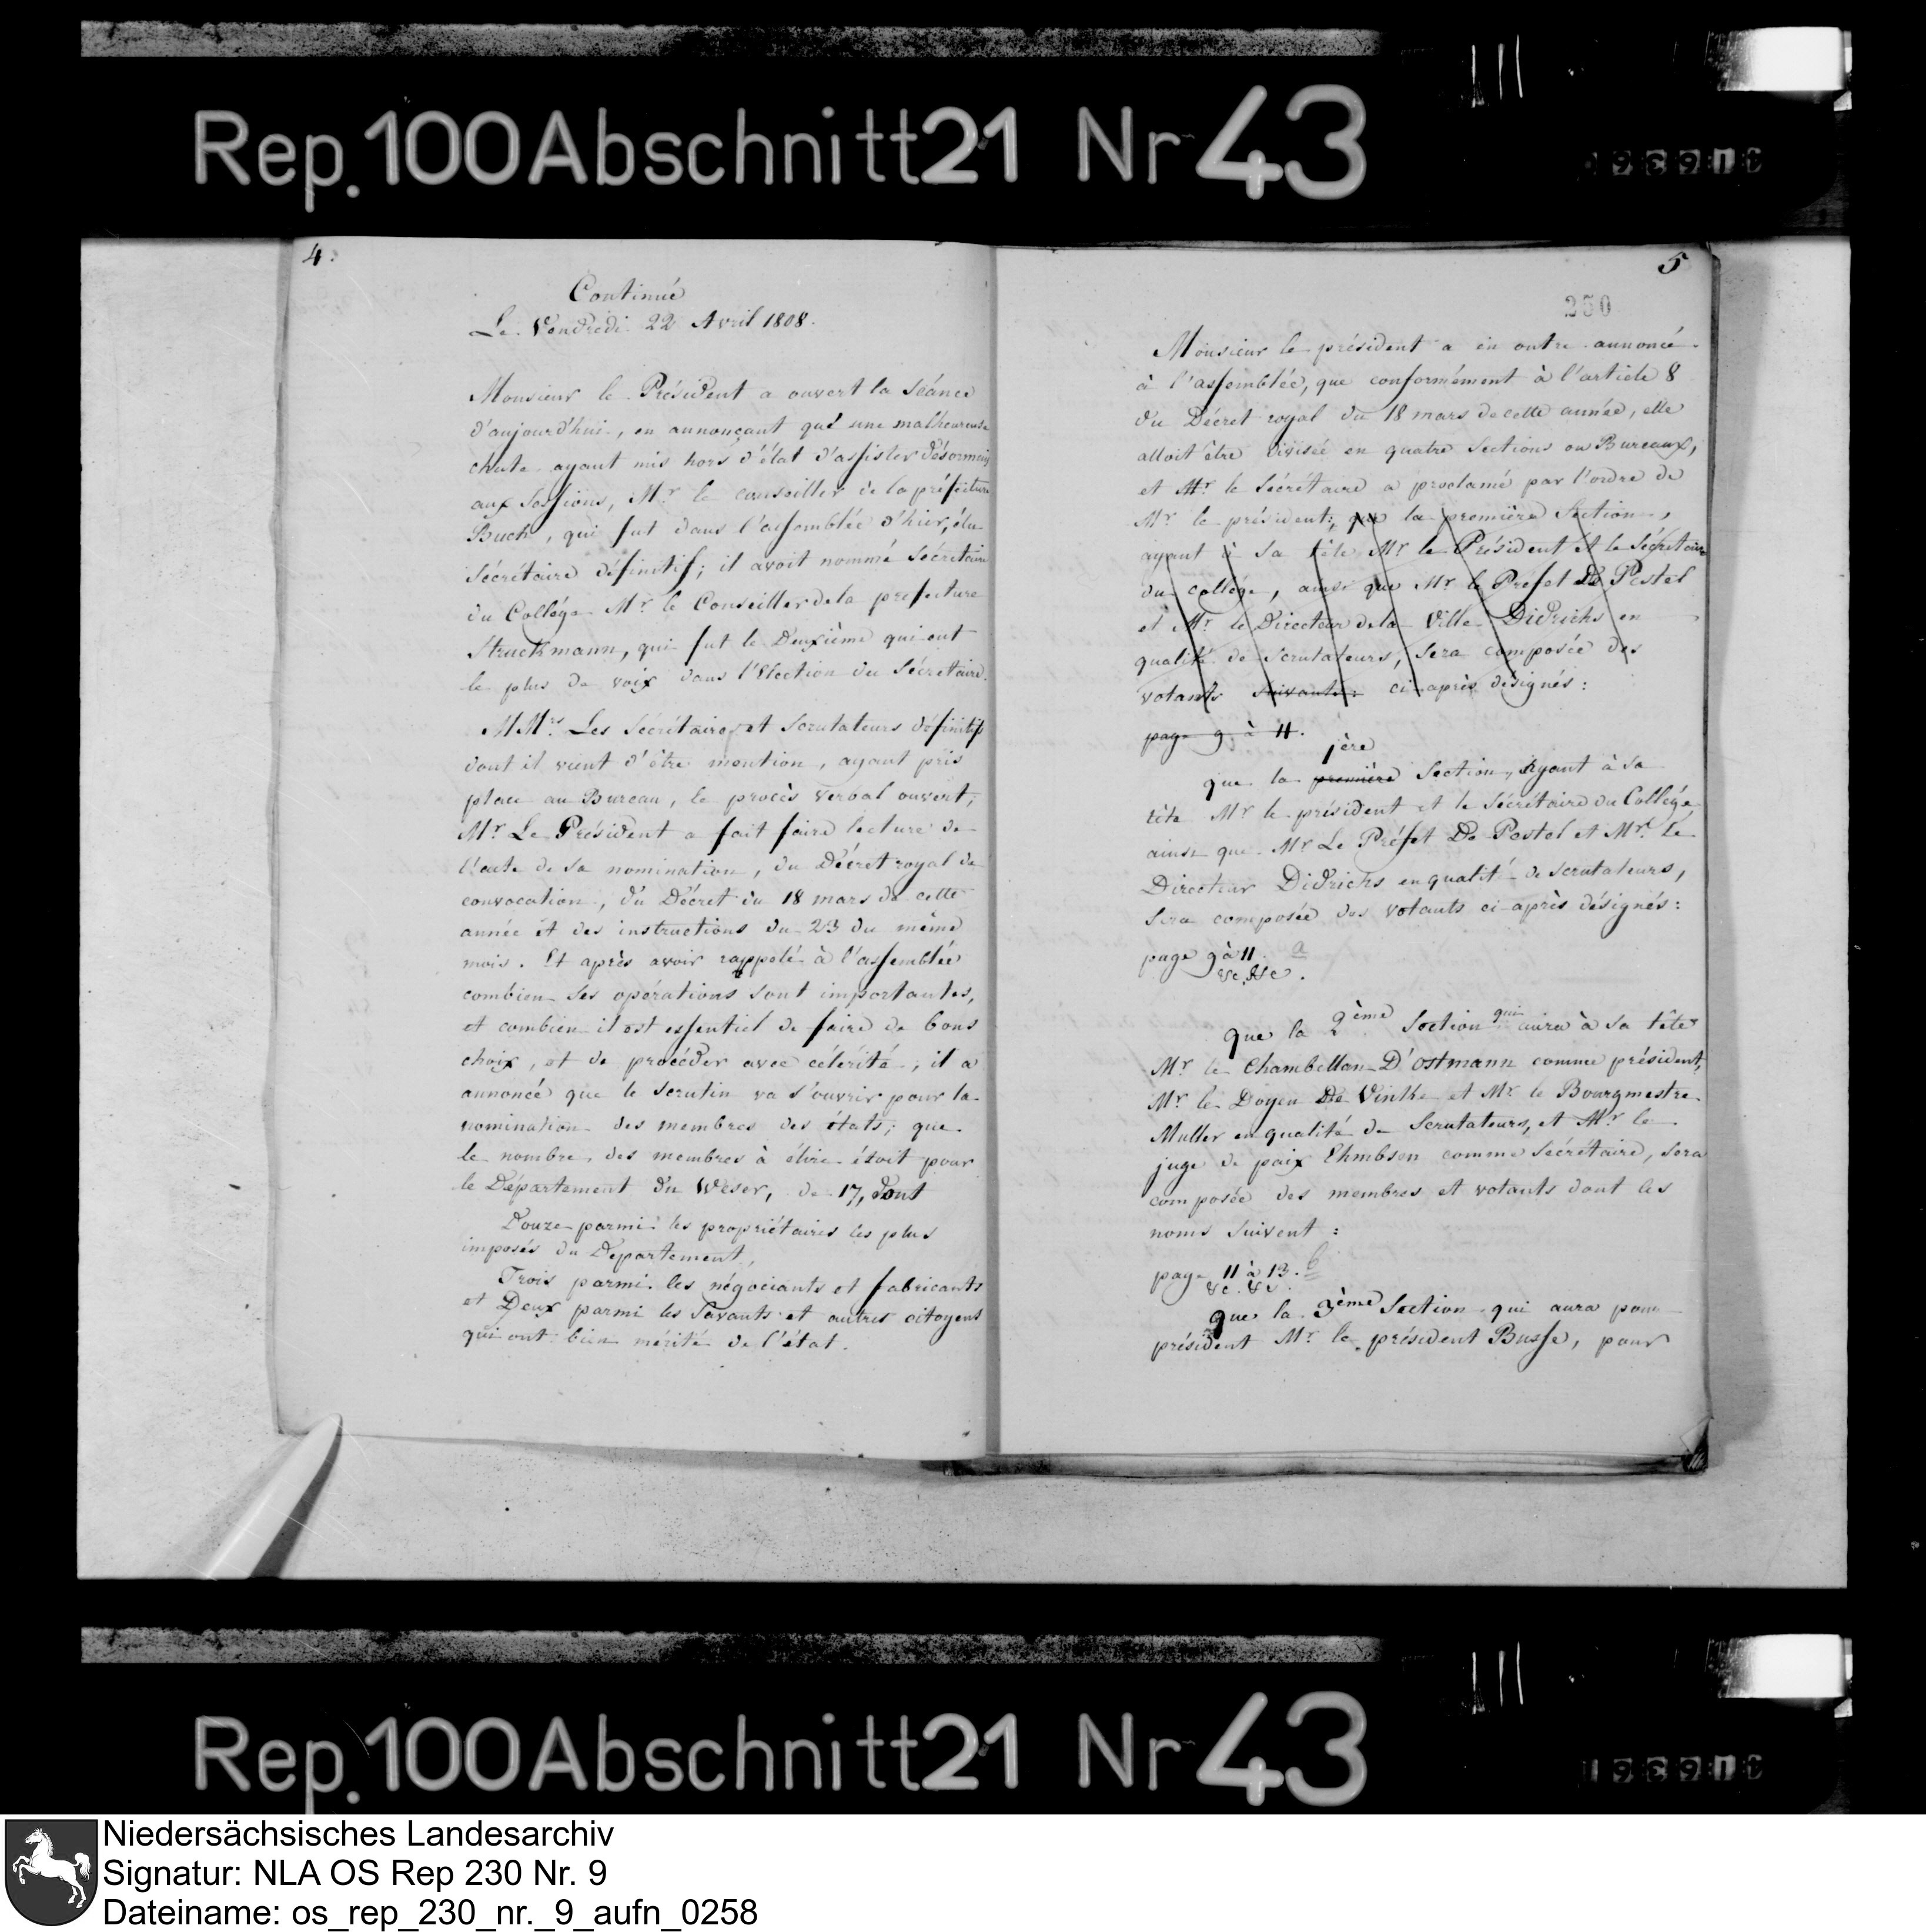 Rep. 100 Abschnitt 21 Nr 43
4.
Continué
Le Vendredi 22 Avril 1808.
Monsieur le Président a ouvert la Séance
d'aujourd'hui, en annonçant qué une malheureuse
chute ayant mis hors d'état d'assister désormais
aux Sessions, Mr. le conseiller de la préfecture
Buch, qui fut dans l'assemblée d'hier, élu
Sécrétaire définitif; il avoit nommé Sécrétaire
du Collége Mr. le Conseiller de la prefecture
Struckmann, qui fut le Deuxième qui eut
le plus de voix dans l'Election du Sécretaire.
MMrs. Les Sécrétaires et Scrutateurs définitifs
dont il vient d'être mention, ayant pris
place au Bureau, le procès verbal ouvert;
Mr. Le Président a fait faire lecture de
l'acte de sa nomination, du Décret royal de
convocation, du Décret du 18 mars de cette
année et des instructions du 23 du même
mois. Et après avoir rappelé à l'assemblée
combien ses opérations sont importantes,
et combien il est essentiel de faire de bons
choix, et de procéder avec célérité, il a
annoncé que le scrutin va s'ouvrir pour la
nomination des membres des états; que
le nombre des membres à élire étoit pour
le Département du Weser, de 17, dont
Douze parmi les propriétaires les plus
imposés du Departement,
Trois parmi les négocians et fabricants
et Deux parmi les Savants et autres citoyens
qui ont bien mérité de l'état.
5
250
Monsieur le président a en outre annoncé
à l'assemblée, que conformément à l'article 8
du Décret royal du 18 mars de cette année, elle
alloit être divisée en quatre Sections ou Bureaux,
et Mr. le Sécrétaire a proclamé par l'ordre de
Mr. le président; que la première Section,
ayant à sa tête Mr. le Président et le Sécrétaire
du collége, ainsi que Mr. le Prefet De Pestel
et Mr. le Directeur de la Ville Didrichs en
qualité de Scrutateurs, sera composée des
votants suivants: ci-après désignés:
page 9 à 11.
1ère
que la première Section, Ayant à sa
tête Mr. le président et le Sécrétaire du Collége
ainsi que Mr. Le Préfet De Pestel et Mr. le
Directeur Didrichs en qualité de Scrutateurs,
Sera composée des votants ci-après désignés:
page 9 à 11. a
&c. &c.
que la 2ème Section qui aura à sa tête
Mr. le Chambellan D'Ostmann comme président,
Mr. le Doyen De Vinke et Mr. le Bourgmestre
Muller en qualité de Scrutateurs, et Mr. le
juge de paix Ehmbsen comme Sécrétaire, sera
composée des membres et votants dont les
noms suivent:
page 11 à 13. b
&c. &c.
que la 3ème Section qui aura pour
président Mr. le président Busse, pour
Rep. 100 Abschnitt 21 Nr 43
Niedersächsisches Landesarchiv
Signatur: NLA OS Rep 230 Nr. 9
Dateiname: os_rep_230_nr._9_aufn_0258